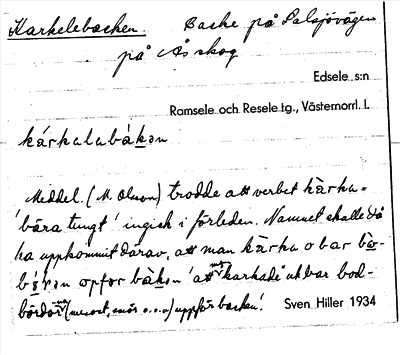 Karkelebacken. Backe på Salsjövägen
på Åskog
Edsele s:n
Ramsele och Resele tg., Västernorrl. L
kárkalabàkən
Meddel. (M. Olsson) trodde att verbet kàrka =
'bära tungt' ingick i förleden. Namnet skulle då
ha uppkommit därav, att man kàrka o bar
opför bàkən 'att karkade och bar bod-
bördor (mesost, smör o.s.v) uppför backen'.
Sven Hiller 1934